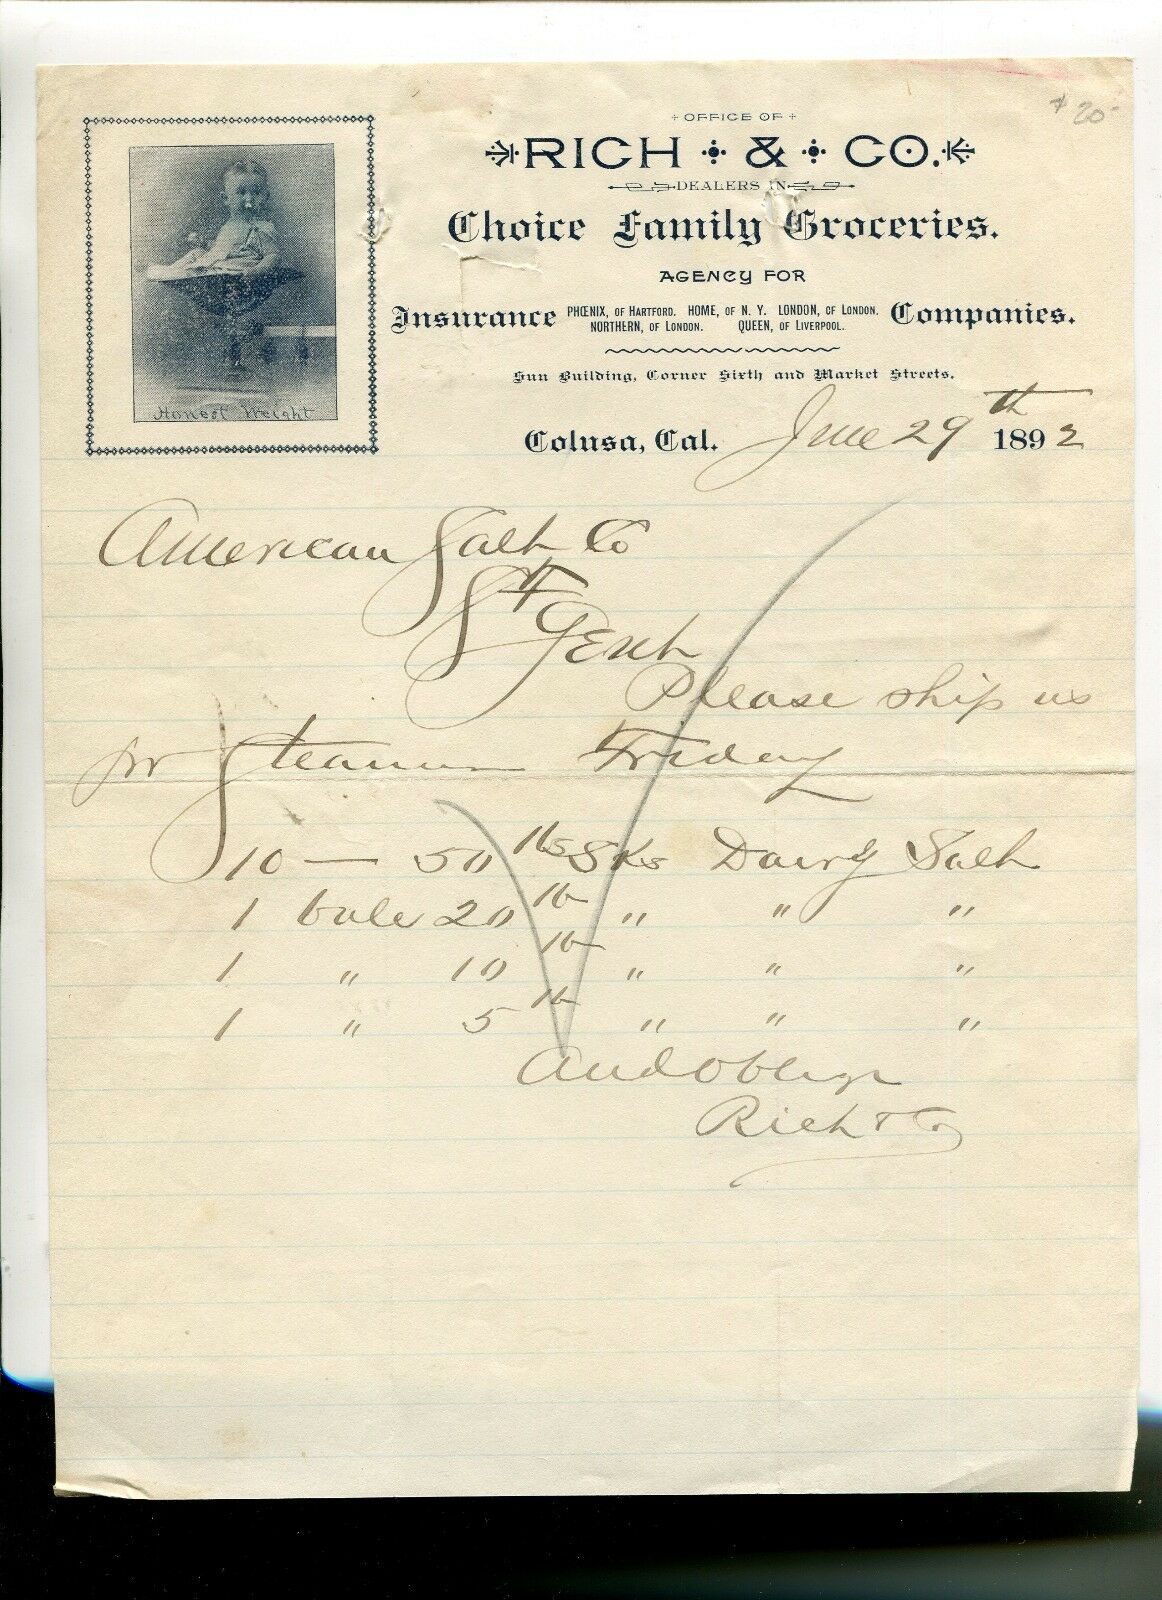 $20-
OFFICE OF
RICH & CO.
DEALERS IN
Choice Family Groceries.
AGENCY FOR
Insurance PHŒNIX, OF HARTFORD. HOME, OF N. Y. LONDON, OF LONDON. NORTHERN, OF LONDON. QUEEN, OF LIVERPOOL. Companies.
Sun Building, Corner Sixth and Market Streets.
Honest Weight
Colusa, Cal. June 29th 1892
American Salt Co
S F
Gent
Please ship us
pr Steamer Friday
10 — 50 lbs Sks Dairy Salt
1 bale 20 lb " " "
1 " 10 lb " " "
1 " 5 lb " " "
And Oblige
Rich & Co